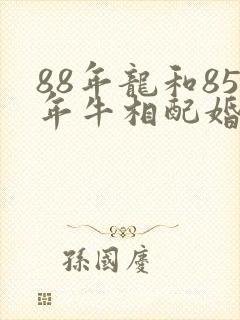 88年龍和85
年牛相配婚
孫國慶